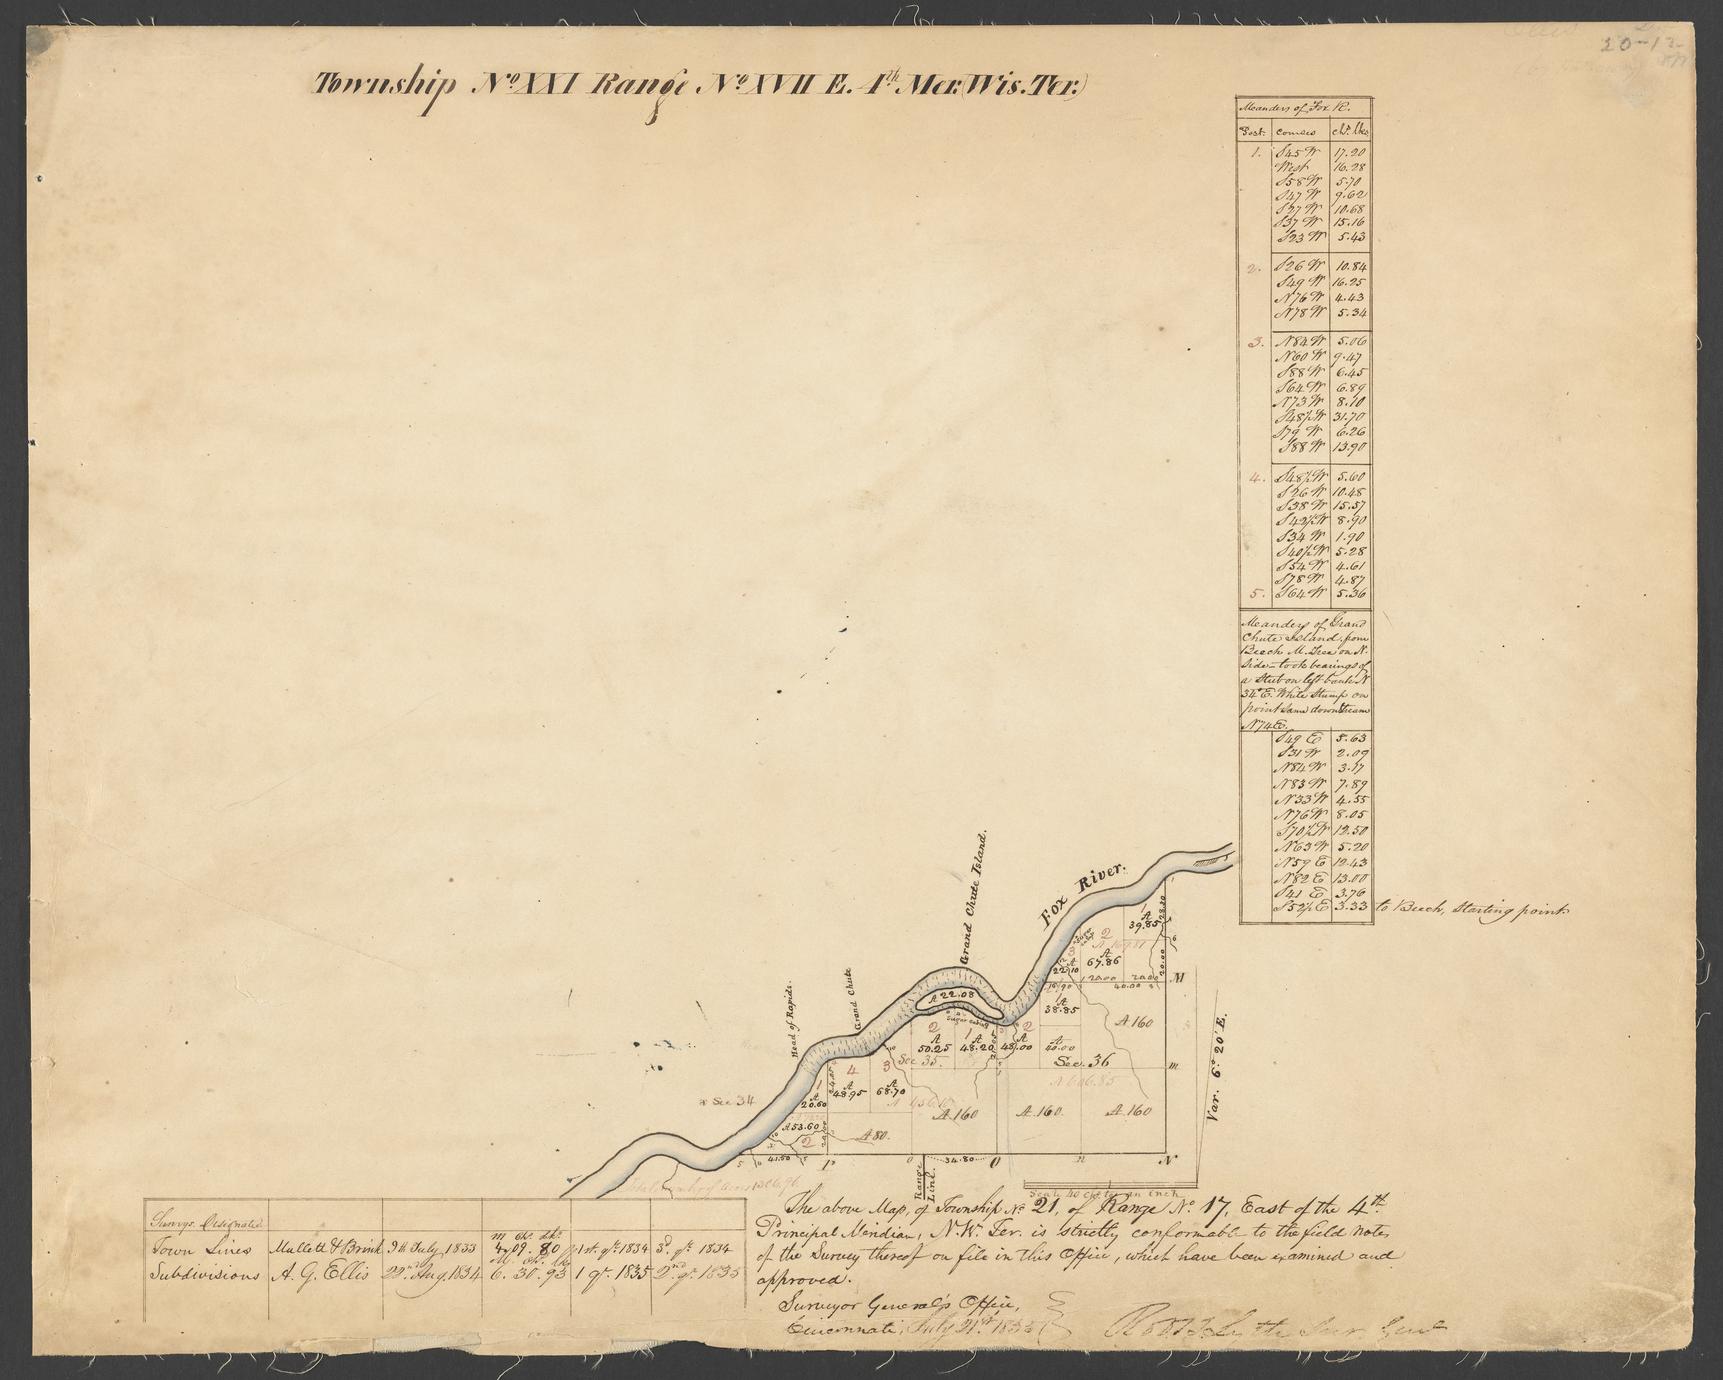 20-17
Township No XXI Range No XVII E. 4th Mer. (Wis. Ter.)
Meanders of Fox R.
Post. Courses Ch. lks
1. S45 W 17.20
West 16.28
S58 W 5.70
S47 W 9.62
S27 W 10.68
S37 W 15.16
S23 W 5.43
2. S26 W 10.84
S49 W 16.25
N76 W 4.43
N78 W 5.34
3. N84 W 5.06
N60 W 9.47
S88 W 6.45
S64 W 6.89
N73 W 8.10
S48½ W 31.70
S79 W 6.26
S88 W 13.90
4. S48½ W 5.60
S26 W 10.48
S38 W 15.57
S42½ W 8.90
S34 W 1.90
S40½ W 5.28
S54 W 4.61
S78 W 4.87
5. S64 W 5.36
Meanders of Grand
Chute Island, from
Beech M. Tree on N.
side – took bearings of
a Stub on left bank N
34° E. White Stump on
point same downstream
N74 E.
S49 E 5.63
S31 W 2.09
N84 W 3.17
N83 W 7.89
N33 W 4.55
N76 W 8.05
S70½ W 12.50
N63 W 5.20
N59 E 12.43
N82 E 13.00
S41 E 3.76
S52½ E 3.33 to Beech, Starting point.
Fox River.
Grand Chute Island.
Grand Chute
Head of Rapids.
1
A
39.85
2
A
67.86
3
A
22.10
20.00
40.00
A
38.85
A 160
A
40.00
Sec. 36
A 22.08
Sugar camp
2
A
50.25
1
A
48.20
2
A
48.00
Sec 35.
4
A
48.95
3
A
68.70
1
A
20.60
Sec 34
A 53.60
2
41.50
A 80.
A 160
A 160.
A 160
M
m
P
O
n
N
34.80
Range
Line.
Var. 6° 20' E.
Scale 40 chs to an inch
Survys. Designated
Town Lines Mullett & Brink 9th July 1833 4.09.80 1st. qr. 1834 3d. qr. 1834
Subdivisions A. G. Ellis 22nd Aug. 1834 6.30.93 1 qr. 1835 2nd qr. 1835
The above Map, of Township No 21, of Range No 17, East of the 4th
Principal Meridian, N.W. Ter. is strictly conformable to the field notes
of the Survey thereof on file in this Office, which have been examined and
approved.
Surveyor General's Office,
Cincinnati, July 21st 1835
Sur. Genl